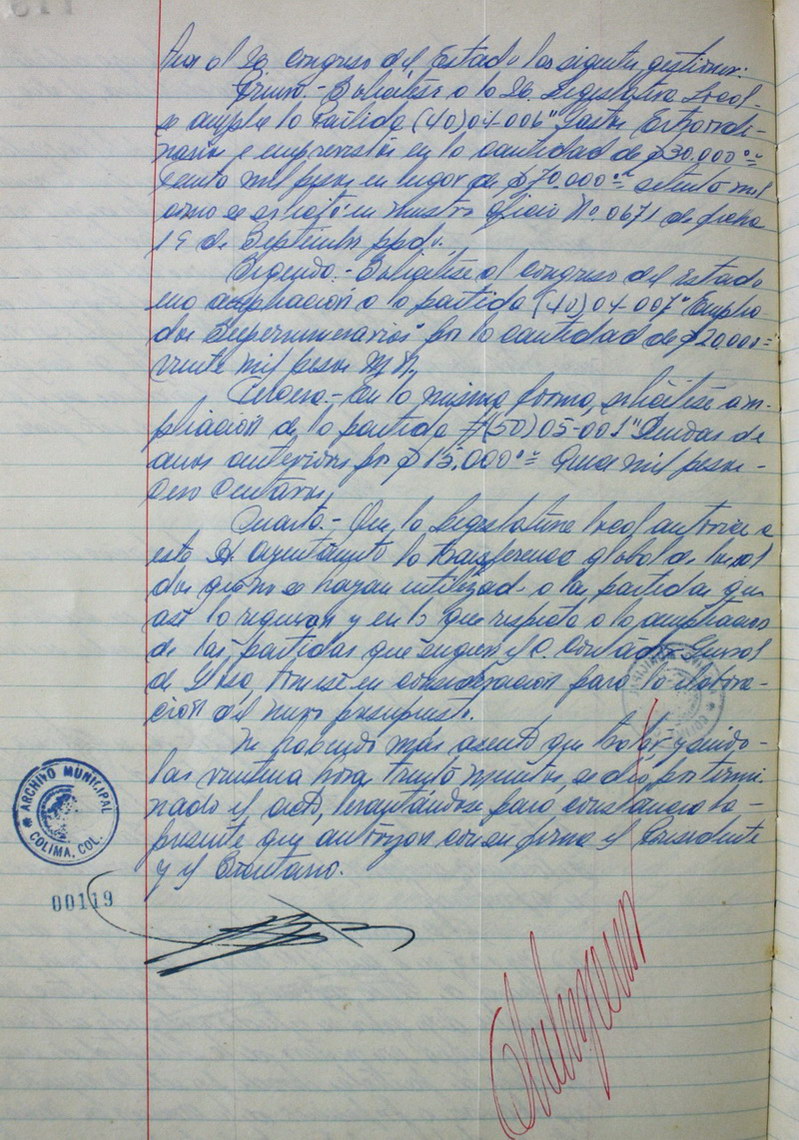 al H. Congreso del Estado las siguientes gestiones:
Primero.- Solicítese a la H. Legislatura Local
se amplíe la Partida (40)04-006 "Gastos Extraordi-
narios e imprevistos en la cantidad de $30.000.00
treinta mil pesos en lugar de $70.000.00 setenta mil
como se solicitó en nuestro oficio No. 0671 de fecha
19 de Septiembre ppdo.
Segundo.- Solicítese al Congreso del Estado
una ampliación a la partida (40)04-007 "Emplea-
dos Supernumerarios" por la cantidad de $20.000=
veinte mil pesos M.N.
Tercero.- En la misma forma, solicítese am-
pliación de la partida #(50)05-001 "Deudas de
años anteriores por $15.000.00 Quince mil pesos-
cero centavos.
Cuarto.- Que la Legislatura local autorice a
este H. Ayuntamiento la transferencia global de los sal
dos que no se hayan utilizado a las partidas que
así lo requieran y en lo que respecta a la ampliación
de las partidas que el C. Contador General
de Glosa, tómese en consideración para la elabora-
ción del nuevo presupuesto.
No habiendo más asunto que tratar y siendo-
las veintiuna horas treinta minutos, se dió por termi
nado el acto, levantándose para constancia la-
presente que autorizan con su firma el Presidente
y el Secretario.
ARCHIVO MUNICIPAL
COLIMA, COL.
00119